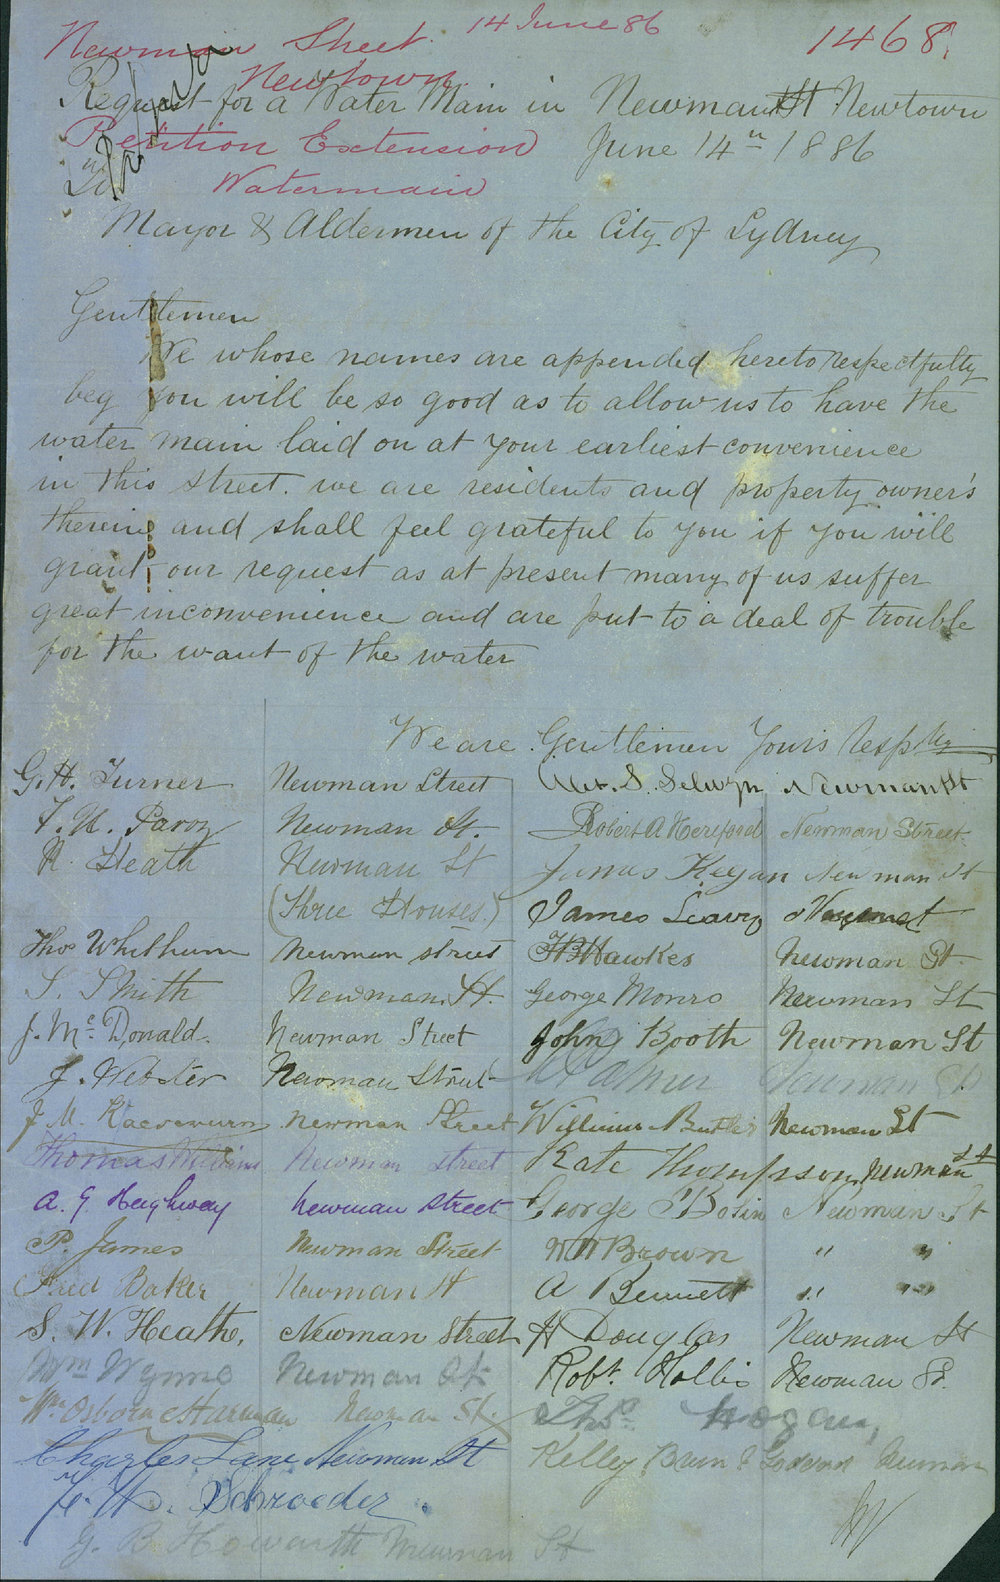 Newman Street 14 June 86 1468.
Newtown
Request for a Water Main in Newman St Newtown
Petition Extension June 14th 1886
To Watermain
Mayor & Aldermen of the City of Sydney
Gentlemen
We whose names are appended hereto respectfully
beg you will be so good as to allow us to have the
water main laid on at your earliest convenience
in this street. we are residents and property owner's
therein and shall feel grateful to you if you will
grant our request as at present many of us suffer
great inconvenience and are put to a deal of trouble
for the want of the water
We are Gentlemen Yours Resply
G. H. Turner Newman Street
Newman St.
Heath Newman St
(Three Houses.)
Thos Newman street
S. Smith Newman St.
J. Mc Donald. Newman Street
J. Webster Newman Street
J. M. Newman Street
Thomas Newman street
A. G. Heighway Newman Street
P. James Newman Street
Fred Baker Newman St
S. W. Heath, Newman Street
Wm Wynne Newman St
Wm Osborn Harman Newman St.
Charles Lane Newman St
Schroeder
G. B. Howarth Newman St
Alex. S. Selwyn Newman St
Robert A Hereford Newman Street
James Keegan Newman St
James Leavey
Hawkes Newman St
George Monro Newman St
John Booth Newman St
Palmer Newman St
William Butler Newman St
Kate Thompson Newman St
George Newman St
W W Brown " "
A Bennett " "
H Douglas Newman St
Robt. Hollis Newman St.
Thos. Hogan,
Kelley